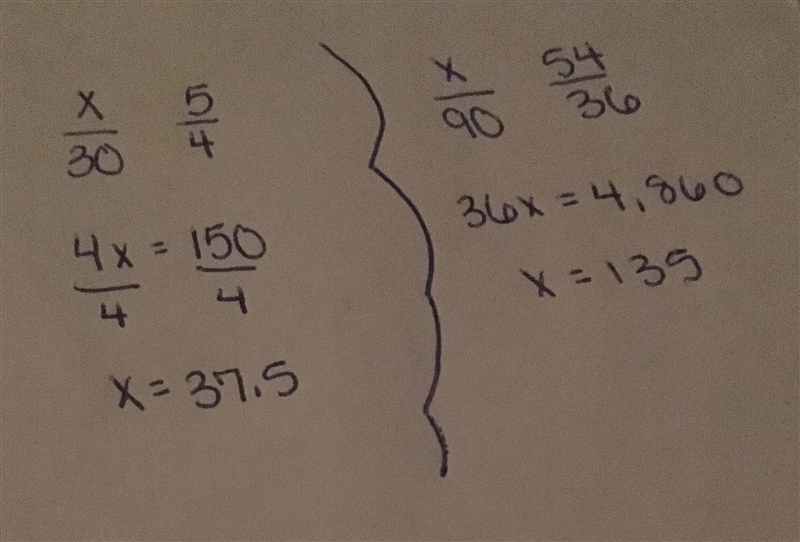 x/30 5/4
4x/4 = 150/4
x = 37.5
x/90 54/36
36x = 4,860
x = 135